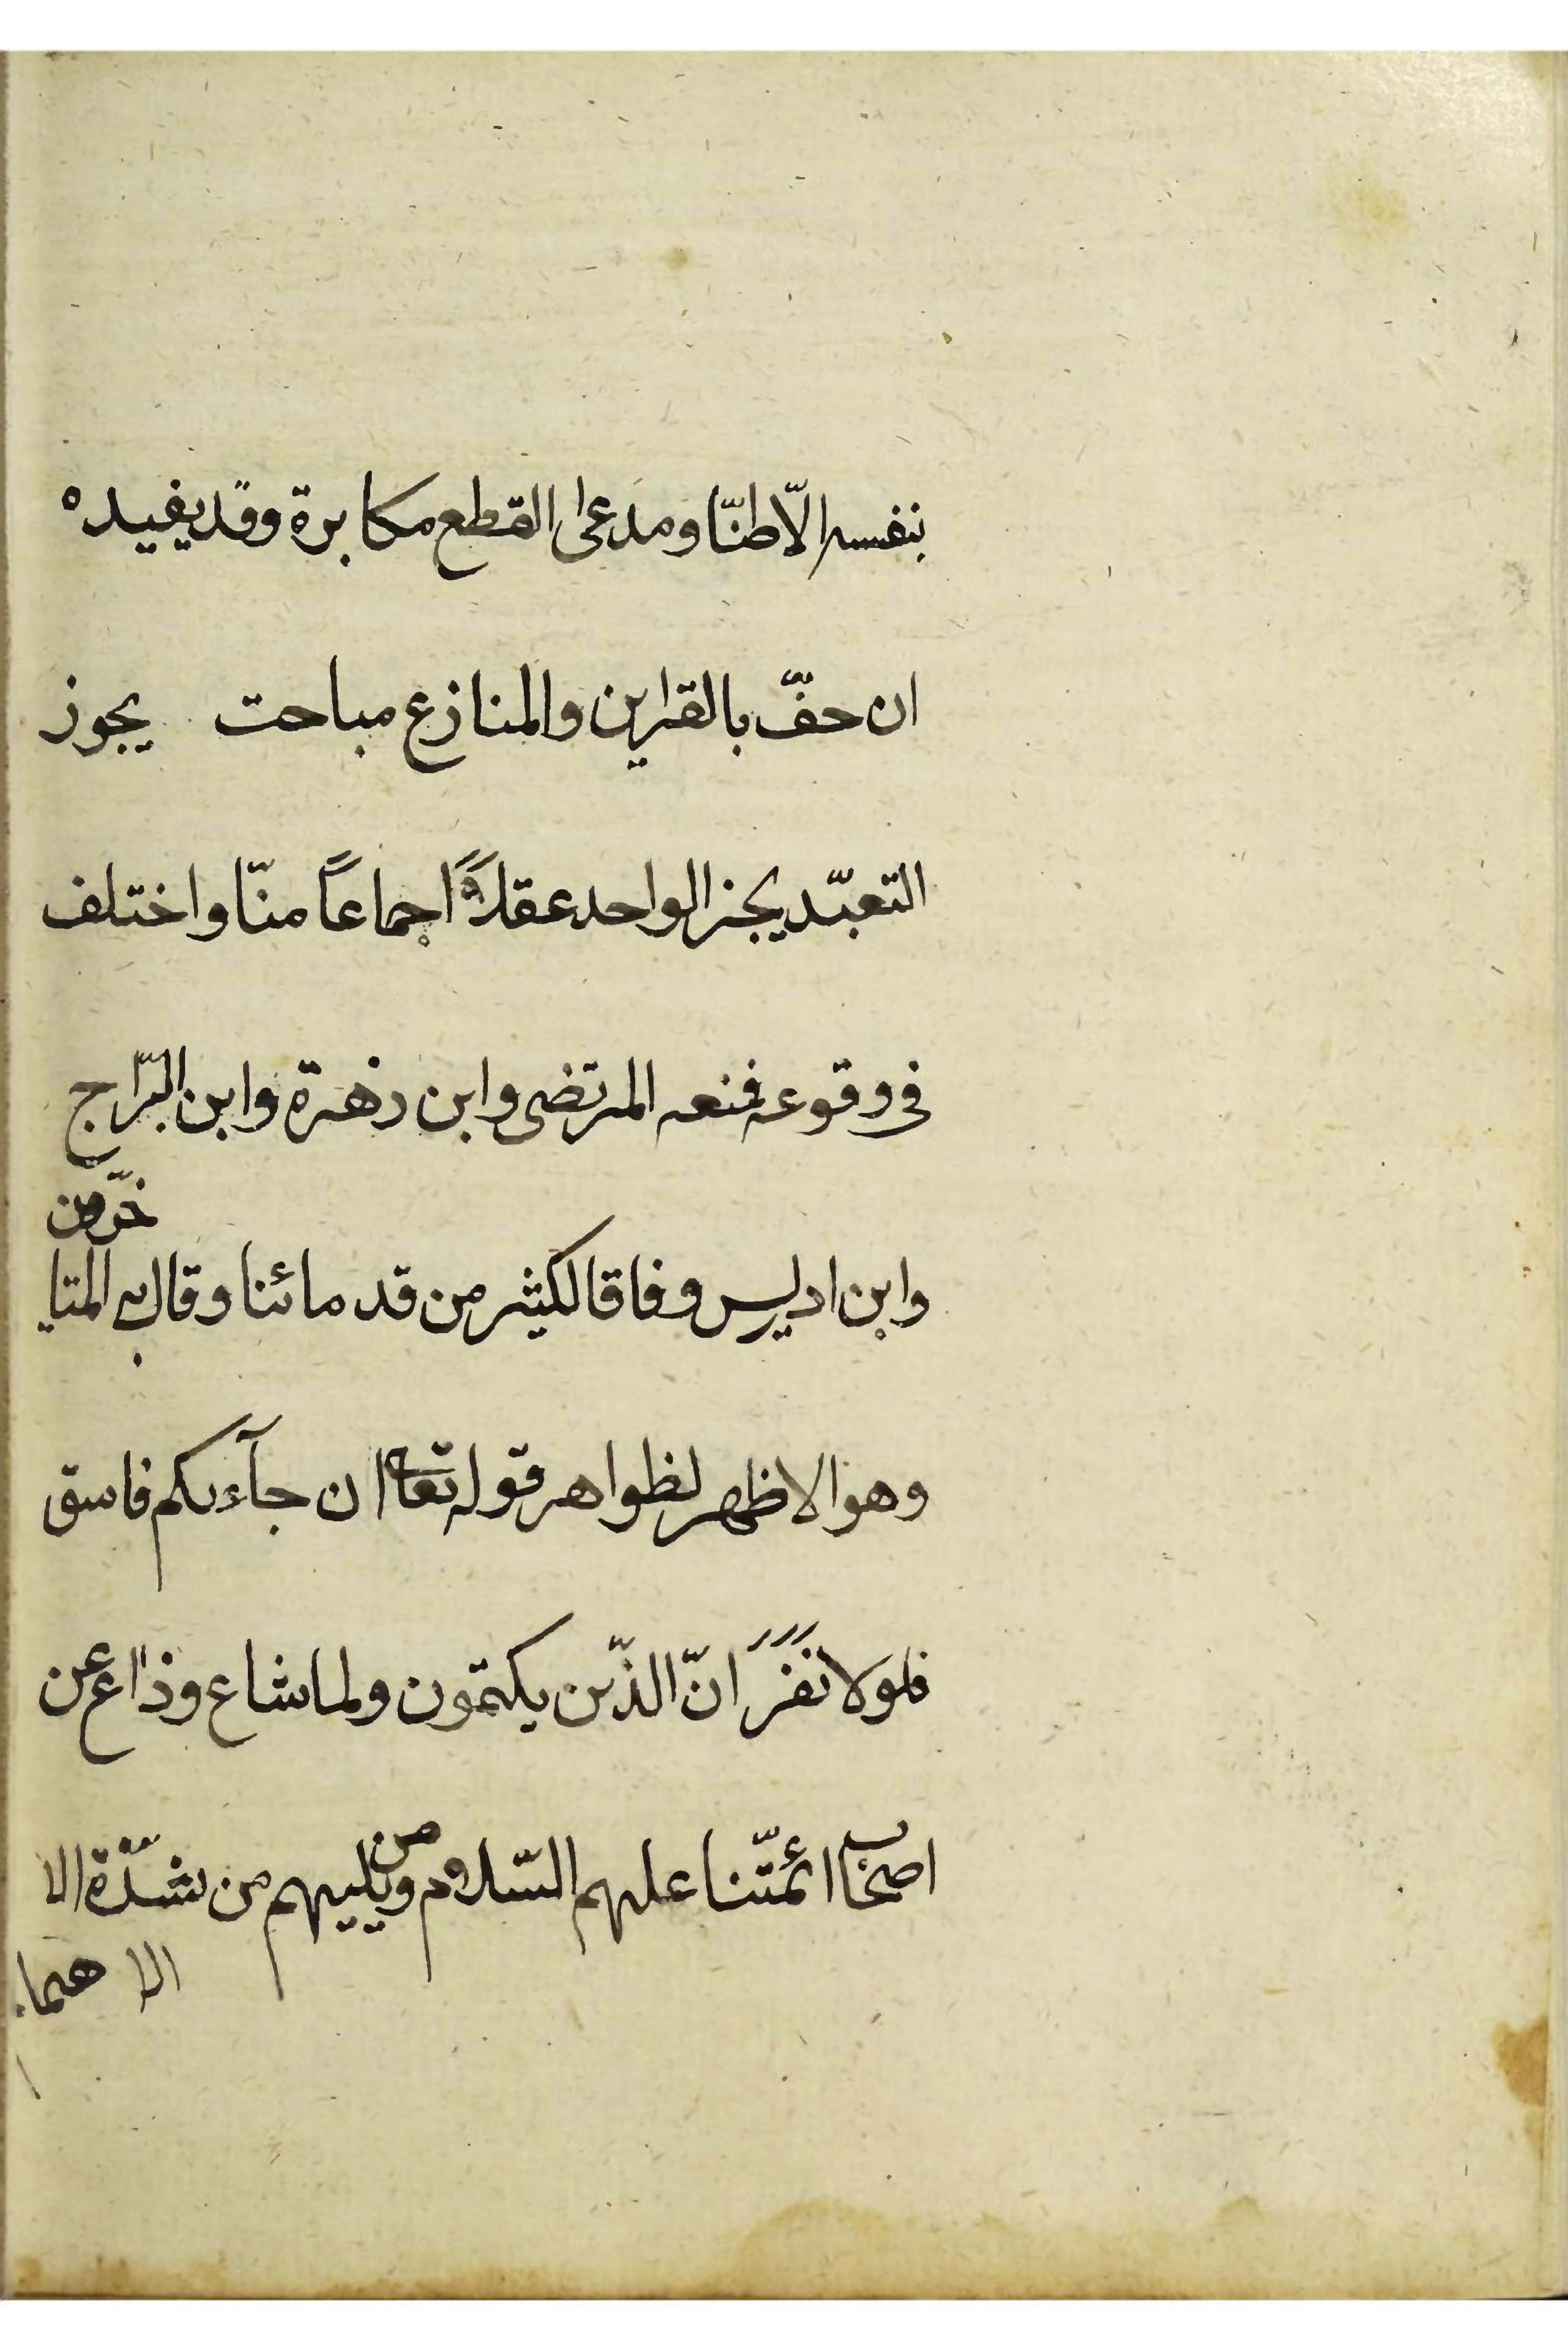 بنفسه الّا ظنّا ومدعى القطع مكابرة وقد يفيده
ان حفّ بالقراين والمنازع مباحت يجوز
التعبّد بخبر الواحد عقلاً اجماعاً منّا واختلف
فى وقوعه فمنعه المرتضى وابن زهرة وابن البرّاج
وابن ادريس وفاقا لكثير من قدمائنا وقال به المتاخّرون
وهو الاظهر لظواهر قوله تعالى ان جآءكم فاسق
فلولا نَفَرَ انّ الذّين يكتمون ولما شاع وذاع عن
اصحاب ائمّتنا عليهم السّلام ومن يليهم من شدّة الا
الا هتما